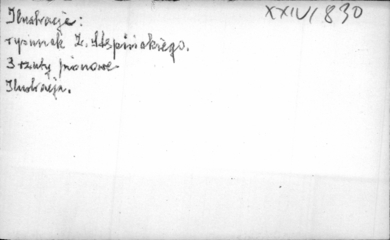 Ilustracje:
XXIV/830
rysunek Z. Stępińskiego.
3 rzuty pionowe
Ilustracja.